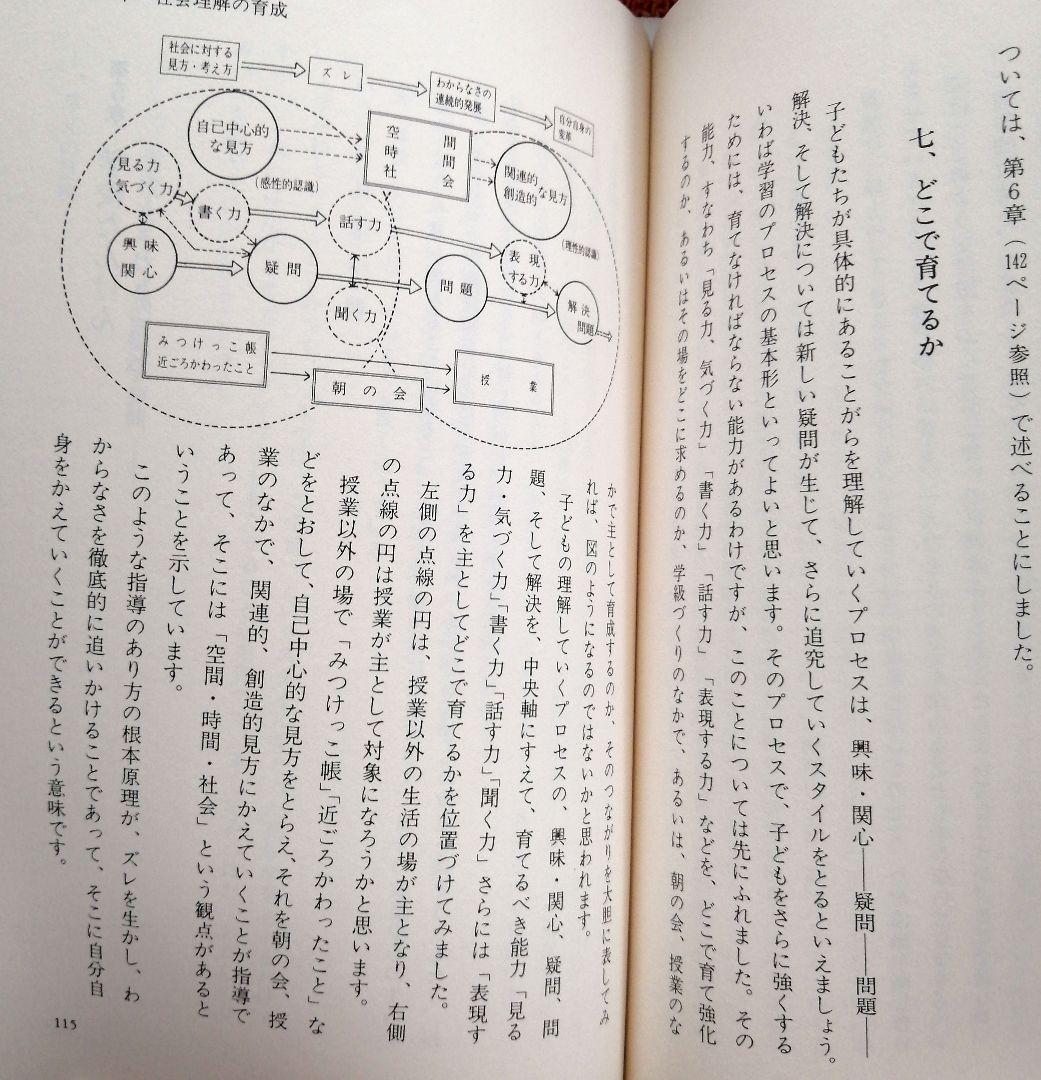 ついては、第6章（142ページ参照）で述べることにしました。
七、どこで育てるか
子どもたちが具体的にあることがらを理解していくプロセスは、興味・関心――疑問――問題――
解決、そして解決については新しい疑問が生じて、さらに追究していくスタイルをとるといえましょう。
いわば学習のプロセスの基本形といってよいと思います。そのプロセスで、子どもをさらに強くする
ためには、育てなければならない能力があるわけですが、このことについては先にふれました。その
能力、すなわち「見る力、気づく力」「書く力」「話す力」「表現する力」などを、どこで育て強化
するのか、あるいはその場をどこに求めるのか、学級づくりのなかで、あるいは、朝の会、授業のな
社会理解の育成
社会に対する
見方・考え方
ズレ
わからなさの
連続的発展
自分自身の
変革
自己中心的
な見方
空間
時間
社会
関連的
創造的
な見方
見る力
気づく力
（感性的認識）
書く力
話す力
（理性的認識）
表現
する力
興味
関心
疑問
問題
解決
問題
聞く力
みつけっこ帳
近ごろかわったこと
朝の会
授業
かで主として育成するのか、そのつながりを大胆に表してみ
れば、図のようになるのではないかと思われます。
子どもの理解していくプロセスの、興味・関心、疑問、問
題、そして解決を、中央軸にすえて、育てるべき能力「見る
力・気づく力」「書く力」「話す力」「聞く力」さらには「表現す
る力」を主としてどこで育てるかを位置づけてみました。
左側の点線の円は、授業以外の生活の場が主となり、右側
の点線の円は授業が主として対象になろうかと思います。
授業以外の場で「みつけっこ帳」「近ごろかわったこと」な
どをとおして、自己中心的な見方をとらえ、それを朝の会、授
業のなかで、関連的、創造的見方にかえていくことが指導で
あって、そこには「空間・時間・社会」という観点があると
いうことを示しています。
このような指導のあり方の根本原理が、ズレを生かし、わ
からなさを徹底的に追いかけることであって、そこに自分自
身をかえていくことができるという意味です。
115